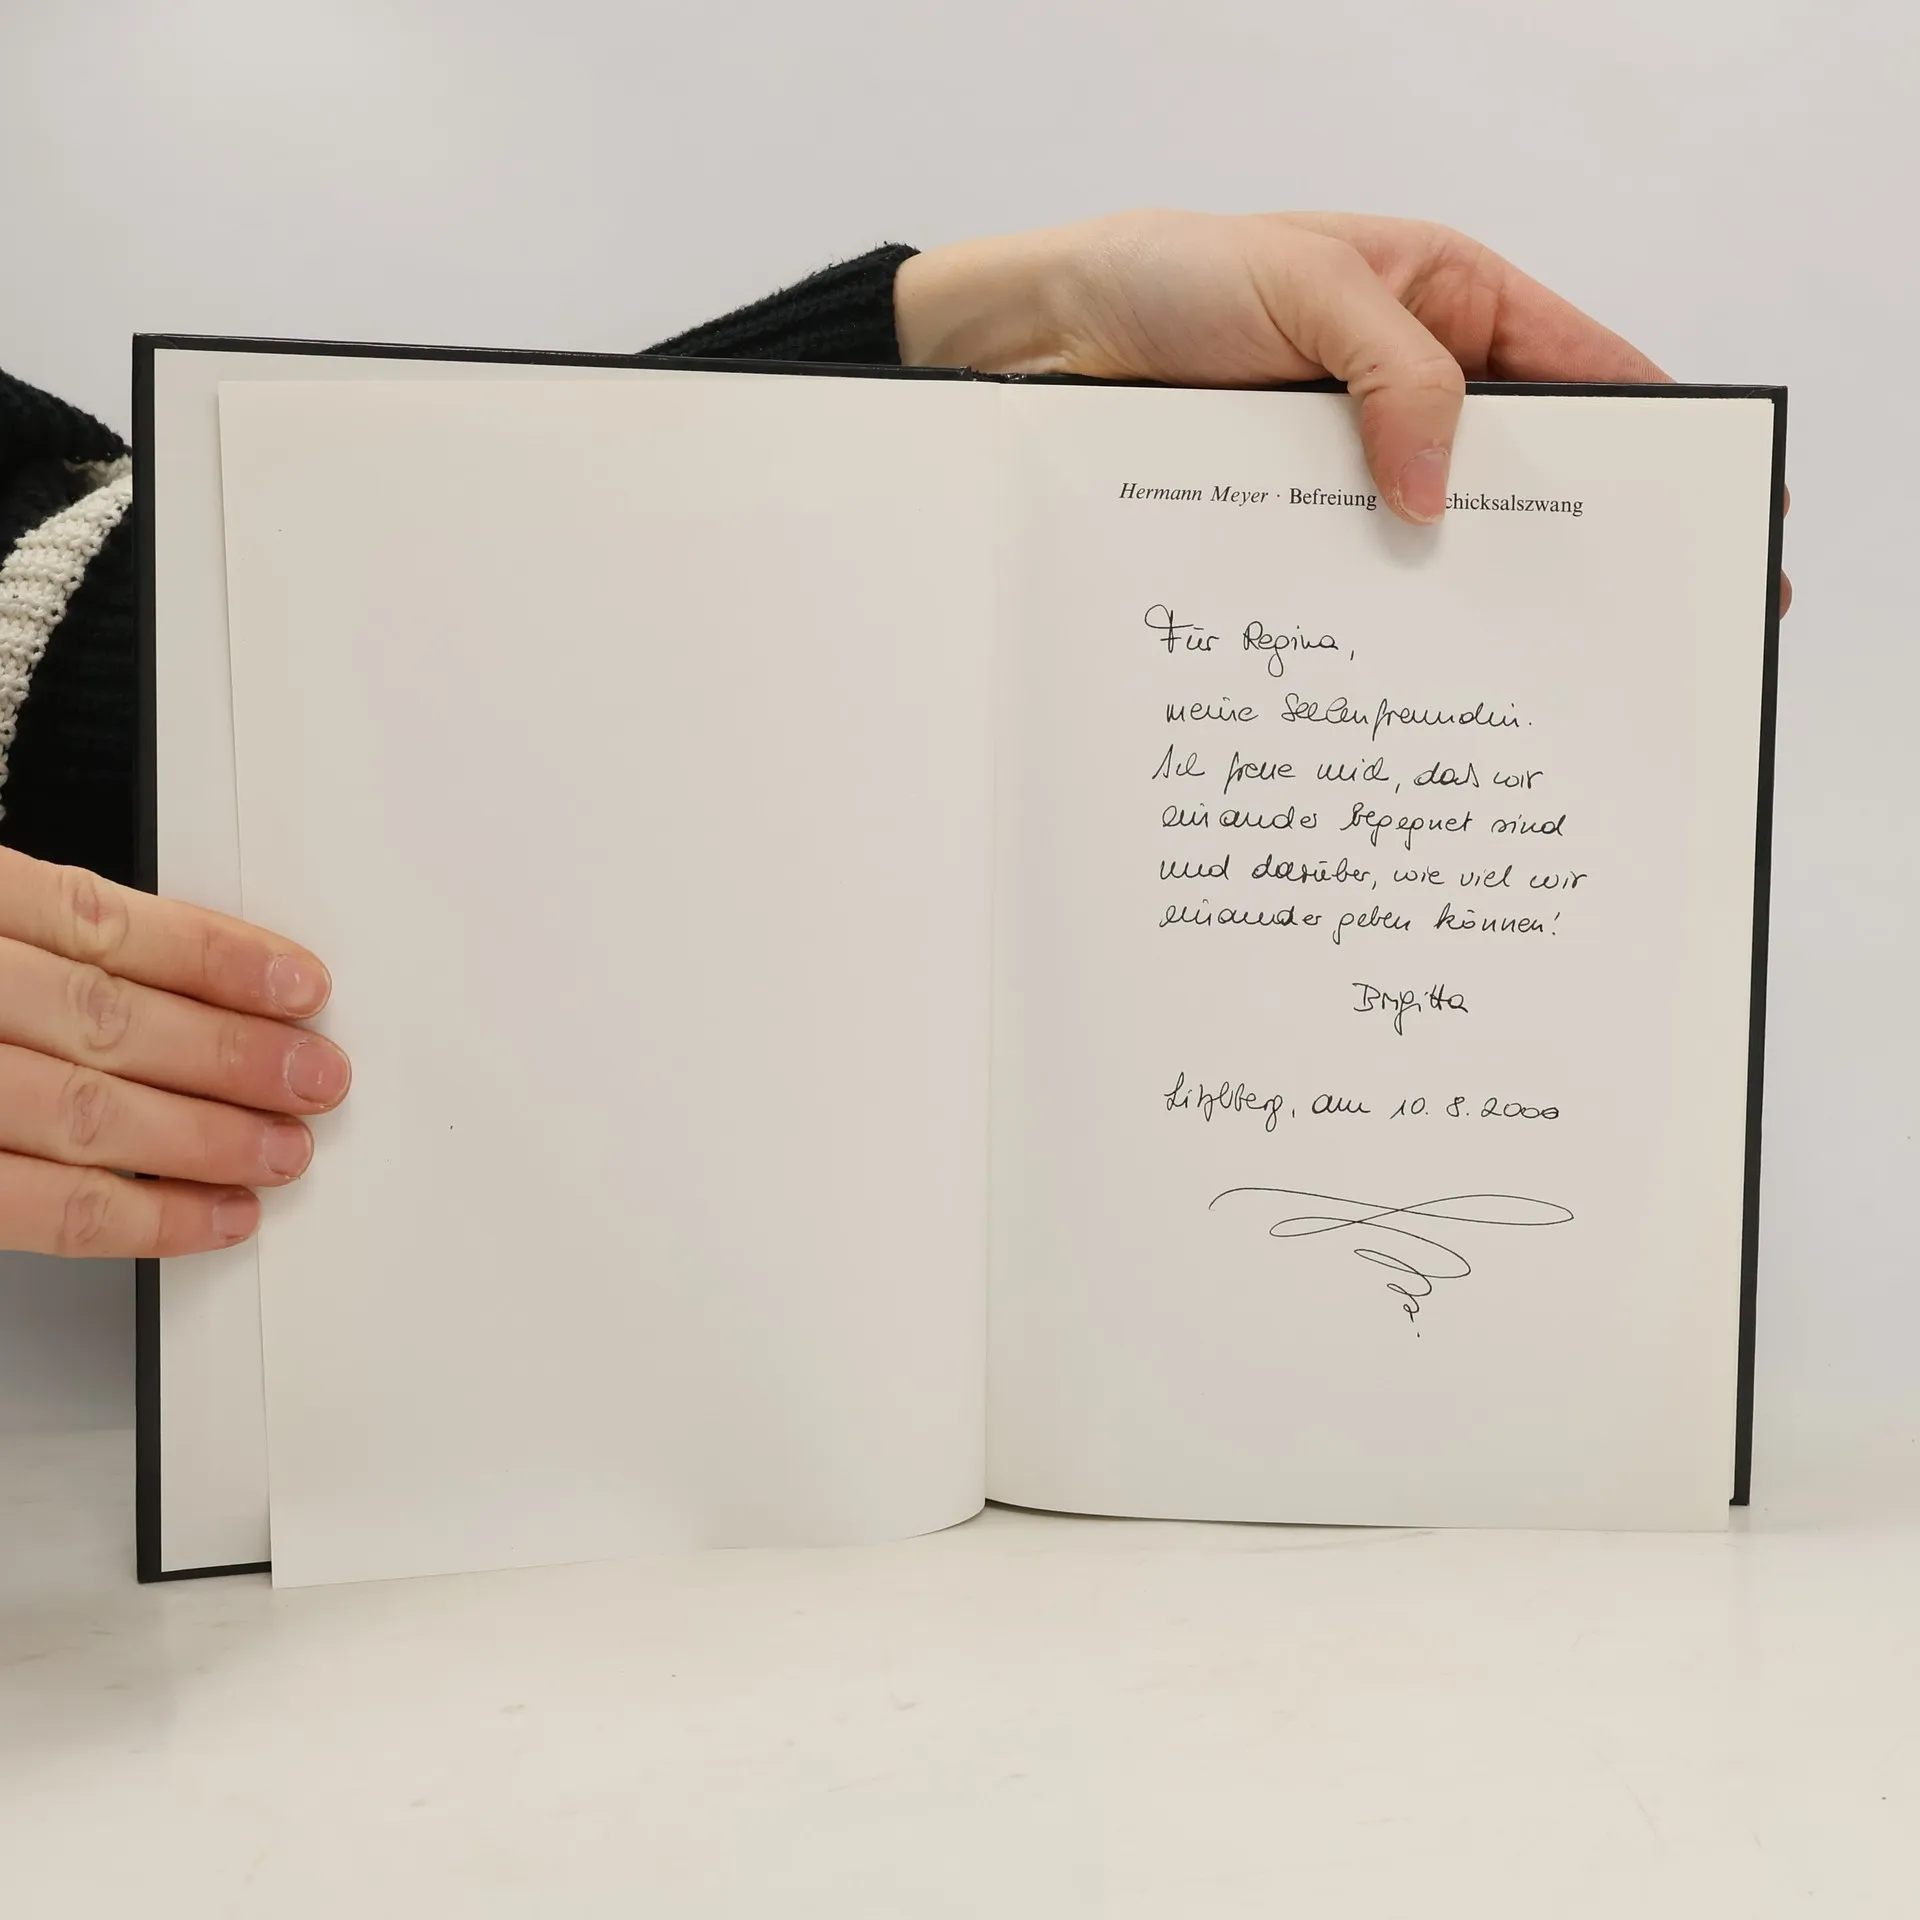 Hermann Meyer · Befreiung chicksalszwang
Für Regina,
meine Seelenfreundin.
Ich freue mich, daß wir
einander begegnet sind
und darüber, wie viel wir
einander geben können!
Brigitta
Litzlberg, am 10. 8. 2000